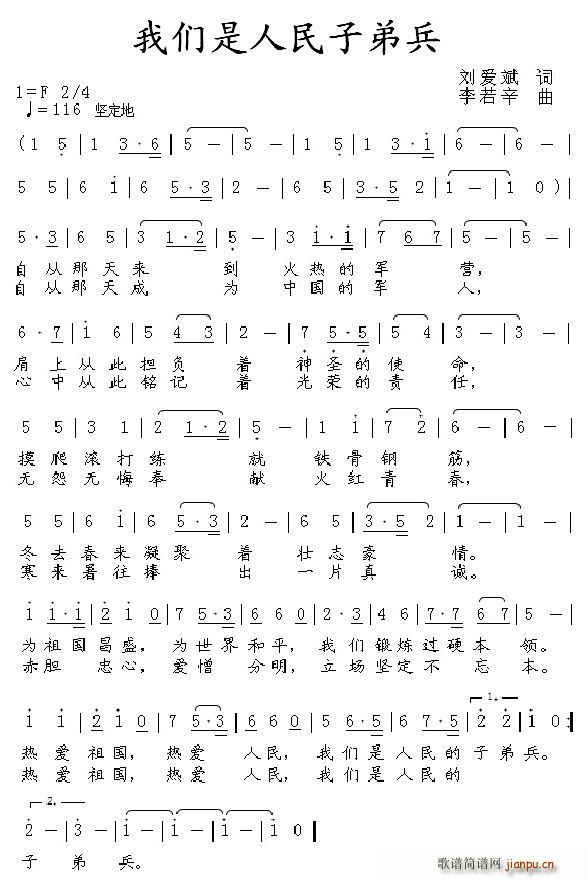 我们是人民子弟兵
刘爱斌 词
1=F 2/4
李若辛 曲
♩=116 坚定地
(1 5 | 1 3·6 | 5 — | 5 — | 1 1 | 3·i | 6 — | 6 — |
5 5 | 6 i | 6 5·3 | 2 — | 6 5 | 3·5 2 | 1 — | 1 0 )|
5·3 | 6 5 | 3 1·2 | 5 — | 3 1·1 | 7 6 7 | 5 — | 5 — |
自从那天来 到 火热的军 营,
自从那天成 为 中国的军 人,
6·7 | i 6 | 5 4 3 | 2 — | 7 5·5 | 5 4 | 3 — | 3 — |
肩上从此担负 着 神圣的使 命,
心中从此铭记 着 光荣的责 任,
5 5 | 3 1 | 2 1·2 | 5 — | 1 1 | 7 2 | 6 — | 6 — |
摸爬滚打练 就 铁骨钢 筋,
无怨无悔奉 献 火红青 春,
5 5 | 6 i | 6 5·3 | 2 — | 6 5 | 3·5 2 | 1 — | 1 — |
冬去春来凝聚 着 壮志豪 情。
寒来暑往捧 出 一片真 诚。
i i·i | 2 i 0 | 7 5·3 | 6 6 0 | 2·3 | 4 6 | 7·7 6 7 | 5 — |
为祖国昌盛, 为世界和平, 我们锻炼过硬本 领。
赤胆 忠心, 爱憎 分明, 立场坚定不 忘 本。
i i | 2 i 0 | 7 5·3 | 6 6 0 | 5 5 | 6·5 | 6 7·5 | 2 2 | i 0 :|
1.
热爱祖国, 热爱 人民, 我们是人民的子弟兵。
热爱祖国, 热爱 人民, 我们是人民的
2.
2 — | 3 — | i — | i — | i — | i 0 |
子 弟 兵。
歌谱简谱网
jianpu.cn